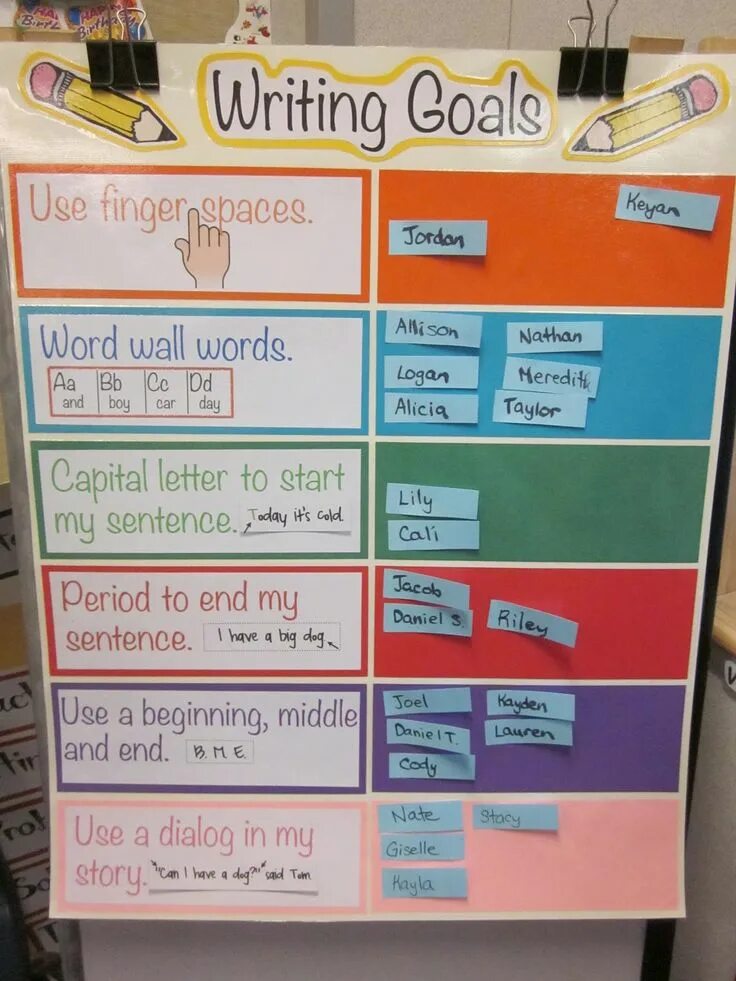 Writing Goals
Use finger spaces.
Jordan
Keyan
Word wall words.
Aa Bb Cc Dd
and boy car day
Allison
Nathan
Logan
Meredith
Alicia
Taylor
Capital letter to start
my sentence. Today it's cold.
Lily
Cali
Period to end my
sentence. I have a big dog.
Jacob
Daniel S.
Riley
Use a beginning, middle
and end. B. M. E.
Joel
Kayden
Daniel T.
Lauren
Cody
Use a dialog in my
story. "Can I have a dog?" said Tom.
Nate
Stacy
Giselle
Kayla